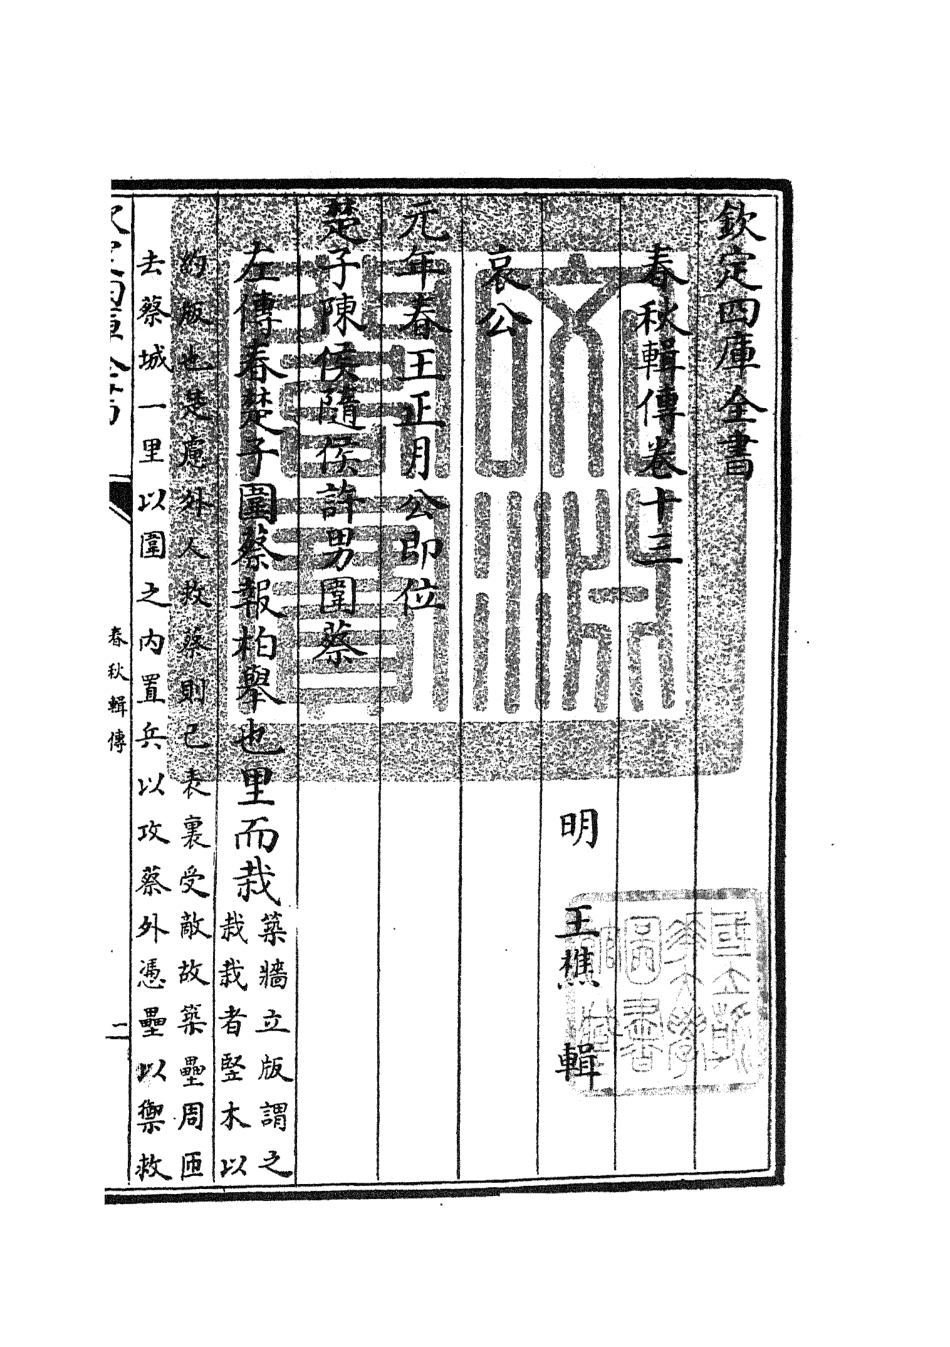 欽定四庫全書
春秋輯傳卷十三
明 王樵 輯
哀公
元年春王正月公即位
楚子陳侯隨侯許男圍蔡
左傳春楚子圍蔡報柏舉也里而栽
築牆立版謂之
栽栽者竪木以
約版也是慮外人救蔡則已表裏受敵故築壘周匝
去蔡城一里以圍之内置兵以攻蔡外憑壘以禦救
春秋輯傳
二
文淵閣寶